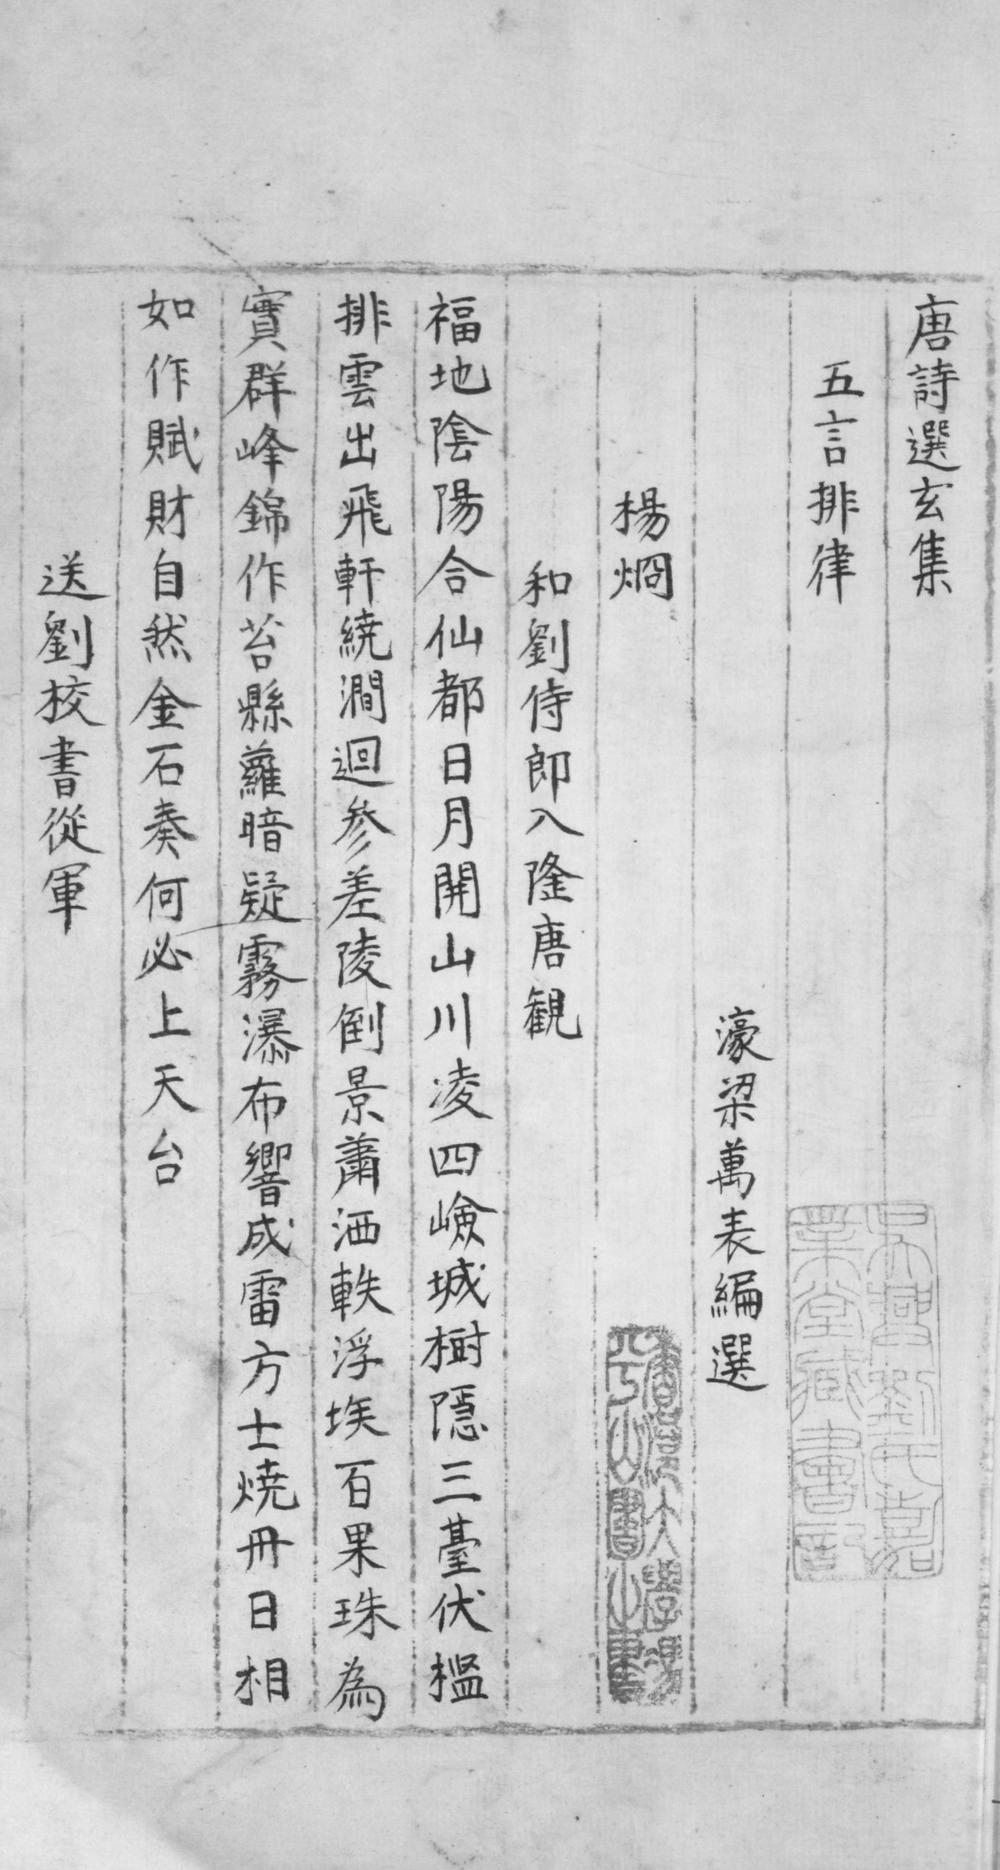 唐詩選玄集
五言排律
濠梁萬表編選
楊烱
和劉侍郎入隆唐観
福地陰陽合仙都日月開山川凌四嶮城樹隠三䑓伏檻
排雲出飛軒繞澗迴參差陵倒景蕭洒軼浮埃百果珠為
實群峰錦作苔縣蘿暗疑霧瀑布響成雷方士燒丹日相
如作賦財自然金石奏何必上天台
送劉校書從軍
吳興劉氏嘉
業堂藏書記